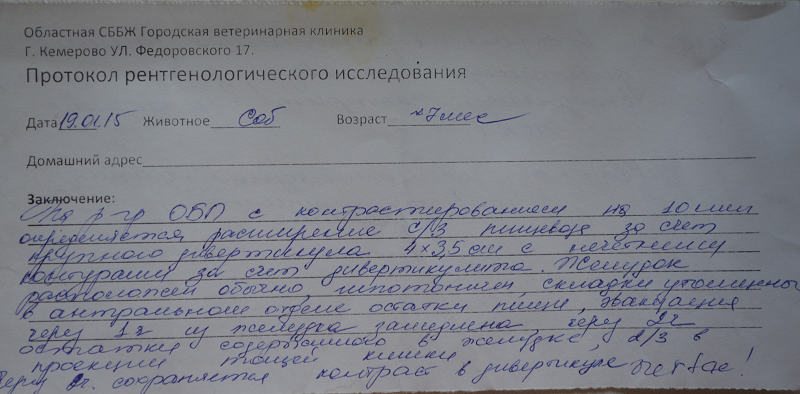 Областная СББЖ Городская ветеринарная клиника
Г. Кемерово УЛ. Федоровского 17.
Протокол рентгенологического исследования
Дата 19.01.15 Животное Соб Возраст ~7мес
Домашний адрес
Заключение:
На р-гр ОБП с контрастированием на 10 мин
определяется расширение с/з пищевода за счет
крупного дивертикула 4×3,5 см с нечеткими
контурами за счет дивертикулита. Желудок
расположен обычно, гипотоничен, складки утолщены
в антральном отделе остатки пищи, эвакуация
через 1ч из желудка замедлена, через 2ч
остатки содержимого в желудке, 2/3 в
проекции тощей кишки
Через ч. сохраняется контраст в дивертикуле